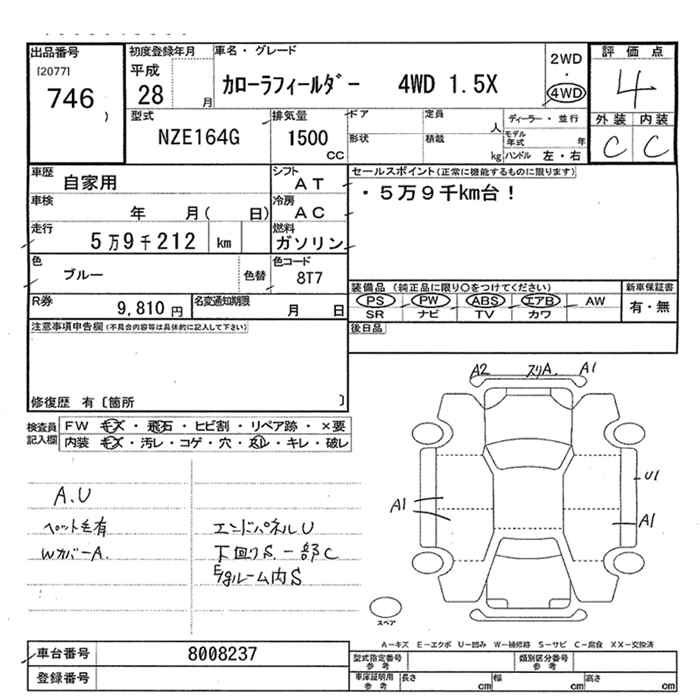 出品番号
[2077]
746
初度登録年月
平成
28 月
車名・グレード
カローラフィールダー 4WD 1.5X
2WD
・
4WD
評価点
4
外装 内装
C C
型式
NZE164G
排気量
1500
CC
ドア
定員
人
ディーラー・並行
形状
積載
kg
モデル年式 年
ハンドル 左・右
車歴
自家用
シフト
AT
セールスポイント(正常に機能するものに限ります)
・5万9千km台!
車検
年 月( 日)
冷房
AC
走行
5万9千212 km
燃料
ガソリン
色
ブルー
色替
色コード
8T7
装備品(純正品に限り○をつけてください)
PS PW ABS エアB AW
SR ナビ TV カワ
新車保証書
有・無
R券
9,810 円
名変通知期限
月 日
後日品
注意事項申告欄(不具合内容等は具体的に記入して下さい)
修復歴 有〔箇所 〕
検査員記入欄
FW キズ・飛石・ヒビ割・リペア跡・×要
内装 キズ・汚レ・コゲ・穴・スレ・キレ・破レ
A2 スリA. A1
U1
A1
A1
A.U
ペット毛有
WカバーA.
エンドパネルU
下回りS.一部C
E/gルーム内S
スペア
A−キズ E−エクボ U−凹み W−補修跡 S−サビ C−腐食 XX−交換済
車台番号
8008237
型式指定番号
参考
類別区分番号
参考
登録番号
車庫証明用
参考
長さ cm
幅 cm
高さ cm